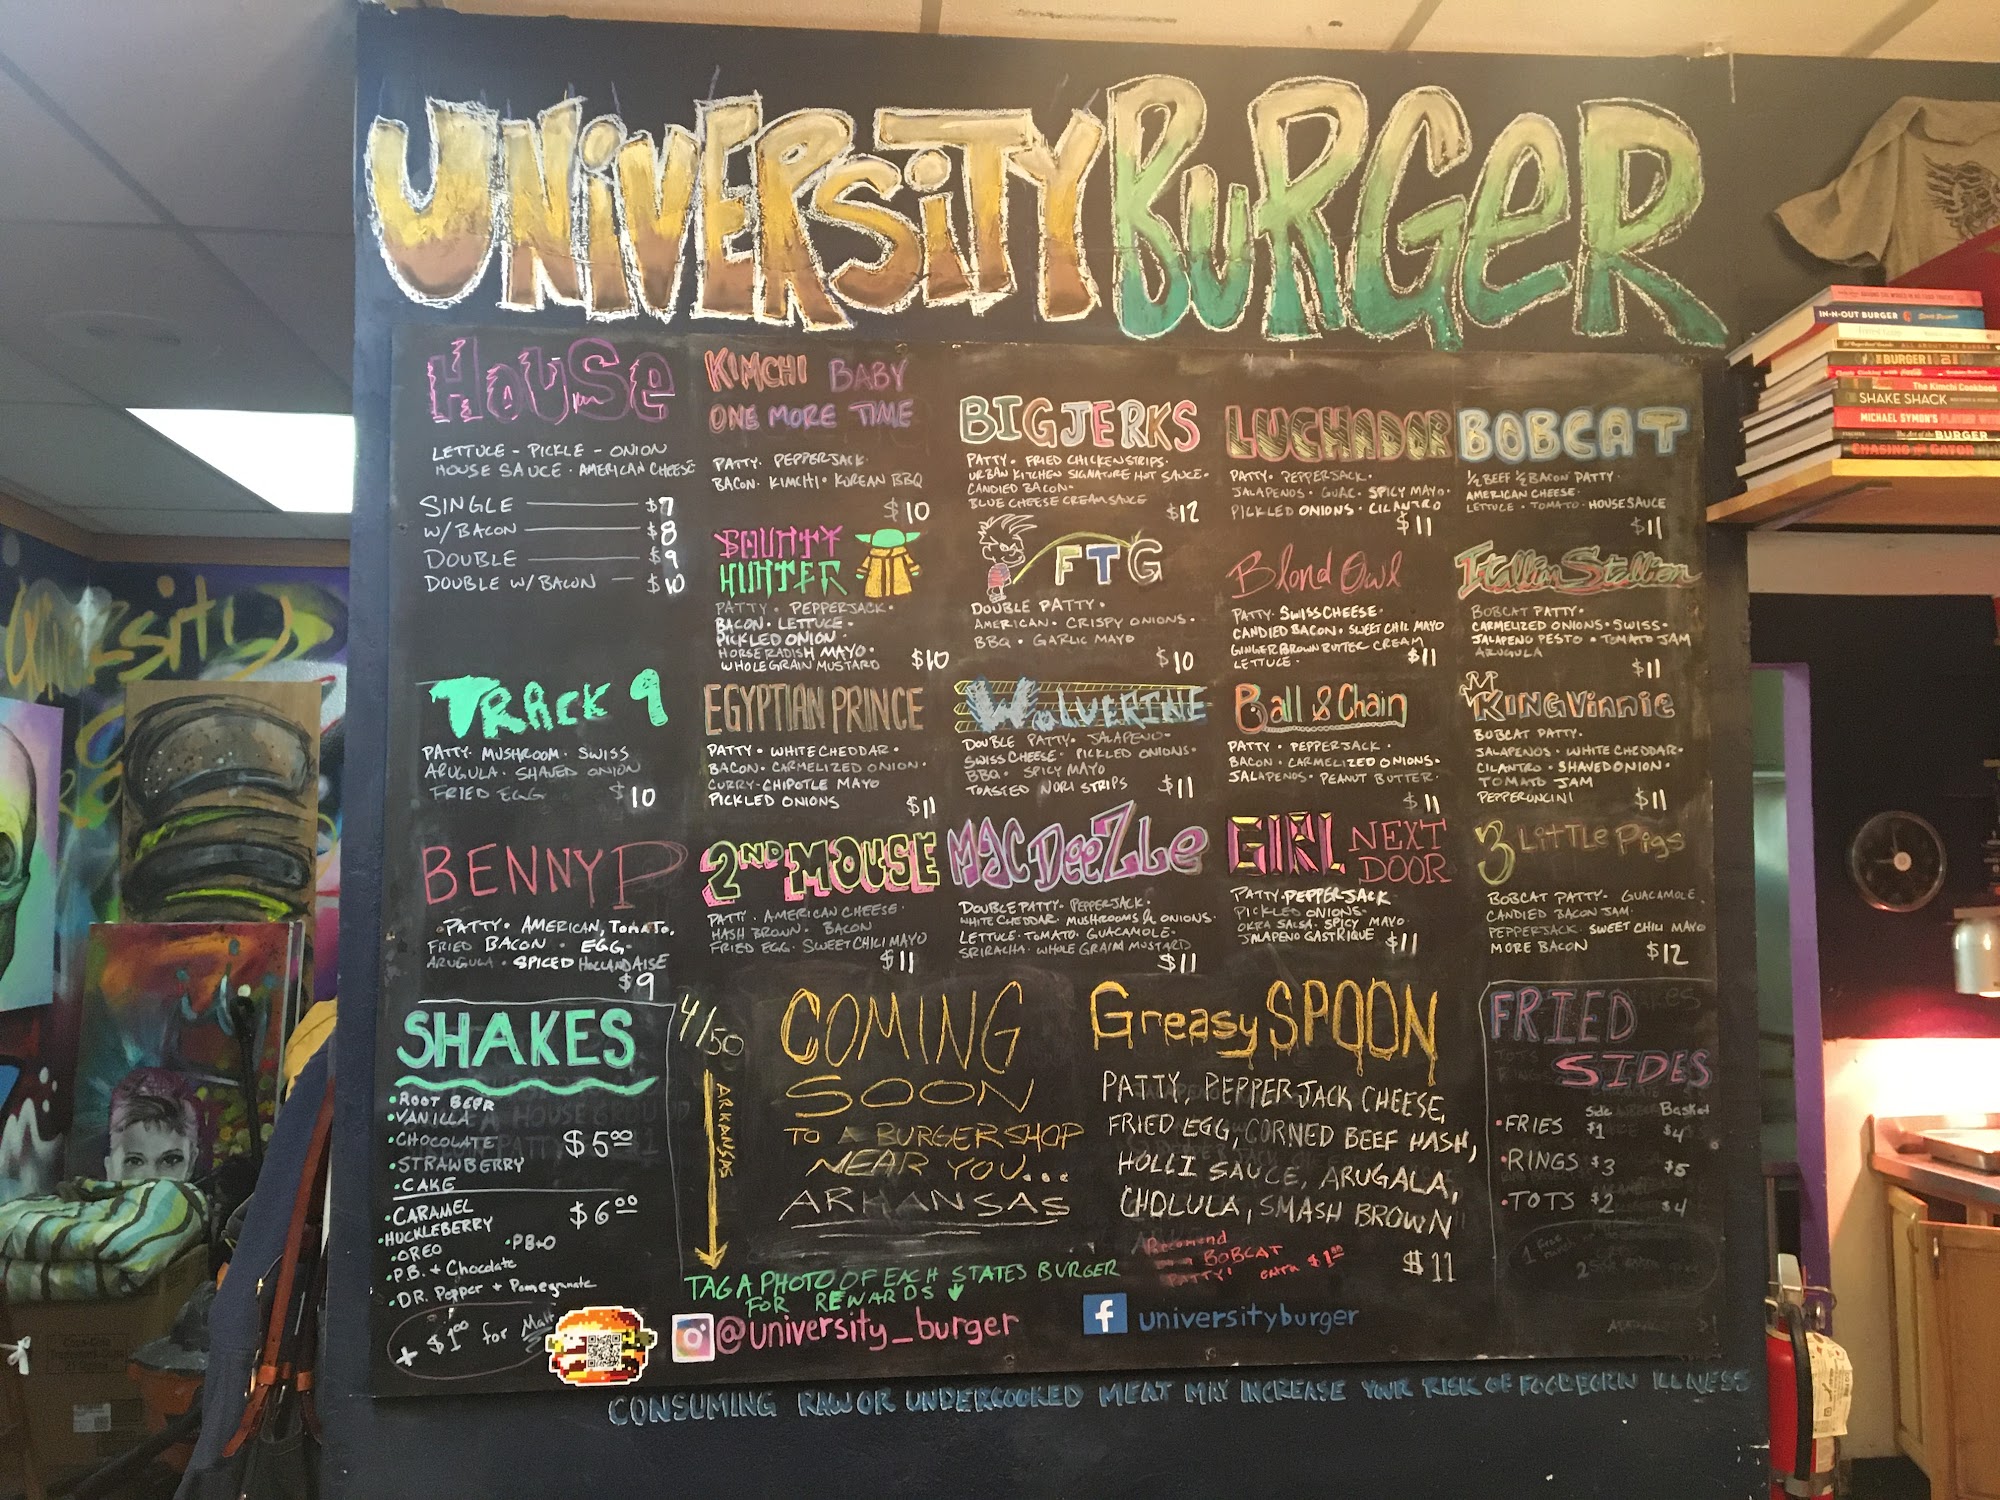 UNIVERSITY BURGER
HOUSE
LETTUCE - PICKLE - ONION
HOUSE SAUCE · AMERICAN CHEESE
SINGLE $7
W/BACON $8
DOUBLE $9
DOUBLE W/BACON $10
KIMCHI BABY
ONE MORE TIME
PATTY · PEPPERJACK ·
BACON · KIMCHI · KOREAN BBQ
$10
BIG JERKS
PATTY · FRIED CHICKEN STRIPS ·
URBAN KITCHEN SIGNATURE HOT SAUCE ·
CANDIED BACON ·
BLUE CHEESE CREAM SAUCE
$12
LUCHADOR
PATTY · PEPPERJACK ·
JALAPENOS · GUAC · SPICY MAYO ·
PICKLED ONIONS · CILANTRO
$11
BOBCAT
1/2 BEEF 1/2 BACON PATTY ·
AMERICAN CHEESE ·
LETTUCE · TOMATO · HOUSE SAUCE
$11
BOUNTY
HUNTER
PATTY · PEPPERJACK ·
BACON · LETTUCE ·
PICKLED ONION ·
HORSERADISH MAYO ·
WHOLE GRAIN MUSTARD $10
FTG
DOUBLE PATTY ·
AMERICAN · CRISPY ONIONS ·
BBQ · GARLIC MAYO
$10
Blond Owl
PATTY · SWISS CHEESE ·
CANDIED BACON · SWEET CHILI MAYO
GINGER BROWN BUTTER CREAM
LETTUCE · $11
Itallian Stallion
BOBCAT PATTY ·
CARMELIZED ONIONS · SWISS ·
JALAPENO PESTO · TOMATO JAM
ARUGULA
$11
TRACK 9
PATTY · MUSHROOM · SWISS
ARUGULA · SHAVED ONION
FRIED EGG $10
EGYPTIAN PRINCE
PATTY · WHITE CHEDDAR ·
BACON · CARMELIZED ONION ·
CURRY-CHIPOTLE MAYO
PICKLED ONIONS $11
WOLVERINE
DOUBLE PATTY · JALAPENO ·
SWISS CHEESE · PICKLED ONIONS ·
BBQ · SPICY MAYO
TOASTED NORI STRIPS $11
Ball & Chain
PATTY · PEPPERJACK ·
BACON · CARMELIZED ONIONS ·
JALAPENOS · PEANUT BUTTER ·
$11
RIP
KING Vinnie
BOBCAT PATTY ·
JALAPENOS · WHITE CHEDDAR ·
CILANTRO · SHAVED ONION ·
TOMATO JAM
PEPPERONCINI $11
BENNY P
PATTY · AMERICAN, TOMATO,
FRIED BACON · EGG ·
ARUGULA · SPICED HOLLANDAISE
$9
2ND MOUSE
PATTY · AMERICAN CHEESE ·
HASH BROWN · BACON
FRIED EGG · SWEET CHILI MAYO
$11
MAC DEEZLE
DOUBLE PATTY · PEPPERJACK ·
WHITE CHEDDAR · MUSHROOMS & ONIONS ·
LETTUCE · TOMATO · GUACAMOLE ·
SRIRACHA · WHOLE GRAIM MUSTARD
$11
GIRL NEXT
DOOR
PATTY · PEPPERJACK
PICKLED ONIONS ·
OKRA SALSA · SPICY MAYO
JALAPENO GASTRIQUE $11
3 LITTLE PIGS
BOBCAT PATTY · GUACAMOLE
CANDIED BACON JAM ·
PEPPERJACK · SWEET CHILI MAYO
MORE BACON $12
SHAKES
· ROOT BEER
· VANILLA
· CHOCOLATE $5.00
· STRAWBERRY
· CAKE
· CARAMEL $6.00
· HUCKLEBERRY
· OREO · PB+O
· P.B. + Chocolate
· DR. Pepper + Pomegranate
+ $1.00 for Malt
4/50
ARKANSAS
COMING
SOON
TO A BURGERSHOP
NEAR YOU...
ARKANSAS
Greasy SPOON
PATTY, PEPPERJACK CHEESE,
FRIED EGG, CORNED BEEF HASH,
HOLLI SAUCE, ARUGALA,
CHOLULA, SMASH BROWN
Recomend
on a BOBCAT
PATTY! extra $1.00
$11
FRIED
SIDES
Side Basket
· FRIES $1 $4
· RINGS $3 $5
· TOTS $2 $4
TAG A PHOTO OF EACH STATES BURGER
FOR REWARDS
@university_burger
f universityburger
CONSUMING RAW OR UNDERCOOKED MEAT MAY INCREASE YOUR RISK OF FOODBORN ILLNESS
University
IN-N-OUT BURGER
ALL ABOUT THE BURGER
BURGER
The Kimchi Cookbook
SHAKE SHACK
MICHAEL SYMON'S PLAYING WITH
The Art of the BURGER
CHASING THE GATOR